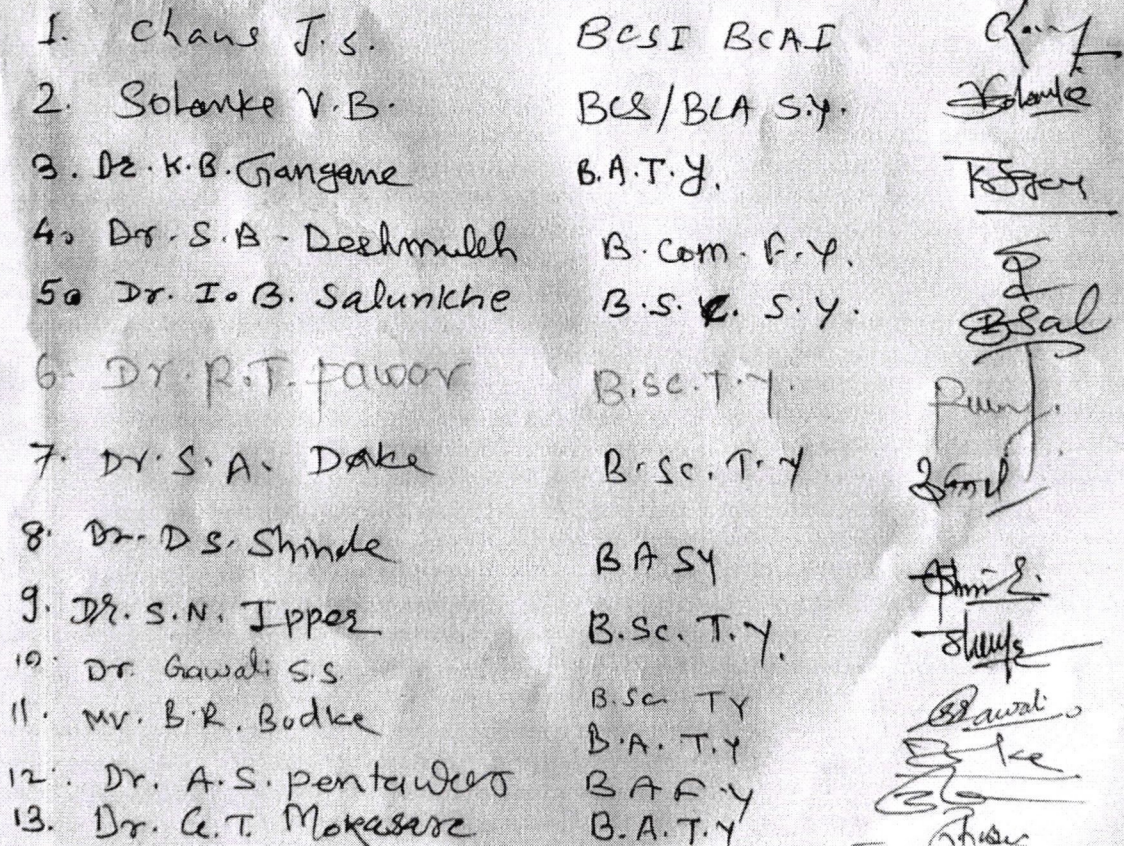 1. Chaus J.S. BCSI BCAI
2. Solanke V.B. BCS/BCA S.Y. Solanke
3. Dr. K.B. Gangane B.A.T.Y.
4. Dr. S.B. Deshmukh B.Com. F.Y.
5. Dr. I.B. Salunkhe B.S.C. S.Y. BSal
6. Dr. R.T. Pawar B.Sc.T.Y
7. Dr. S.A. Dake B.Sc.T.Y
8. Dr. D S. Shinde B A SY
9. Dr. S.N. Ipper B.Sc. T.Y.
10. Dr. Gawali S.S. B.Sc TY Gawali
11. Mr. B.R. Bodke B.A. T.Y
12. Dr. A.S. Pentawar B A F.Y
13. Dr. G.T. Mokasare B.A.T.Y